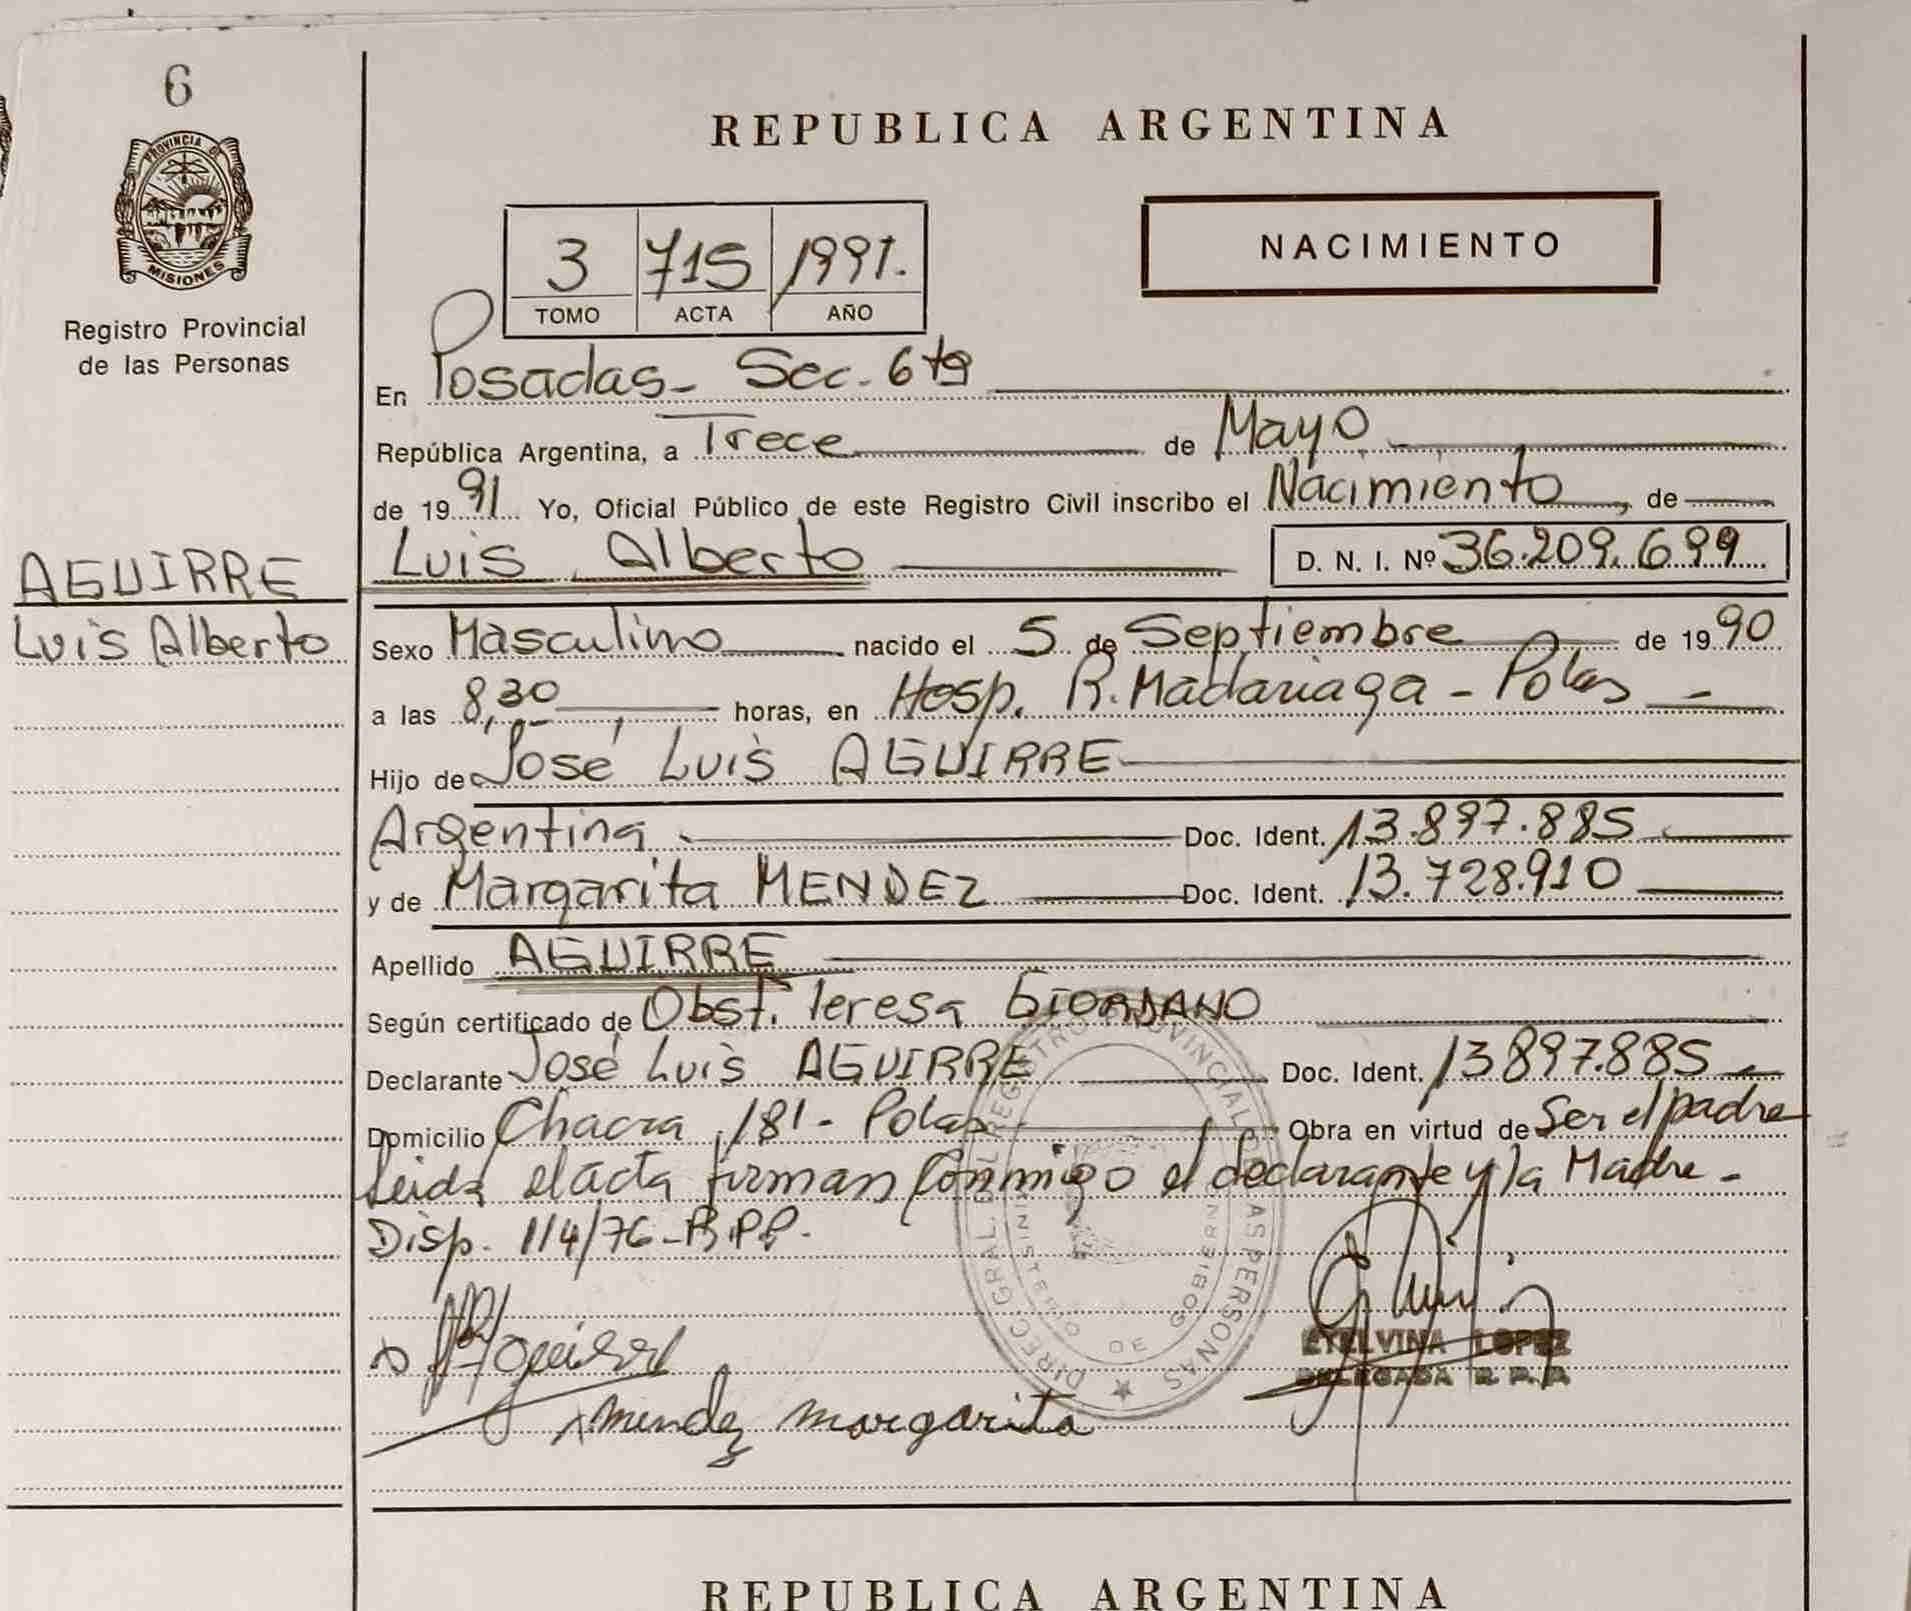 6
PROVINCIA DE
MISIONES
Registro Provincial
de las Personas
AGUIRRE
Luis Alberto
REPUBLICA ARGENTINA
3 715 1991.
TOMO ACTA AÑO
NACIMIENTO
En Posadas - Sec. 6ta
República Argentina, a Trece de Mayo
de 1991 Yo, Oficial Público de este Registro Civil inscribo el Nacimiento, de
Luis Alberto D. N. I. Nº 36.209.699
Sexo Masculino nacido el 5 de Septiembre de 1990
a las 8,30 horas, en Hosp. R. Madariaga - Pdas
Hijo de José Luis AGUIRRE
Argentina Doc. Ident. 13.897.885
y de Margarita MENDEZ Doc. Ident. 13.728.910
Apellido AGUIRRE
Según certificado de Obst. Teresa GIORDANO
Declarante José Luis AGUIRRE Doc. Ident. 13897.885
Domicilio Chacra 181 - Pdas Obra en virtud de Ser el padre
Leida el acta firman conmigo el declarante y la Madre -
Disp. 114/76 - R.P.P.
DIREC. GRAL. DEL REGISTRO PROVINCIAL DE LAS PERSONAS
MINISTERIO DE GOBIERNO
ETELVINA LOPEZ
DELEGADA R. P. P.
x Mendez margarita
REPUBLICA ARGENTINA